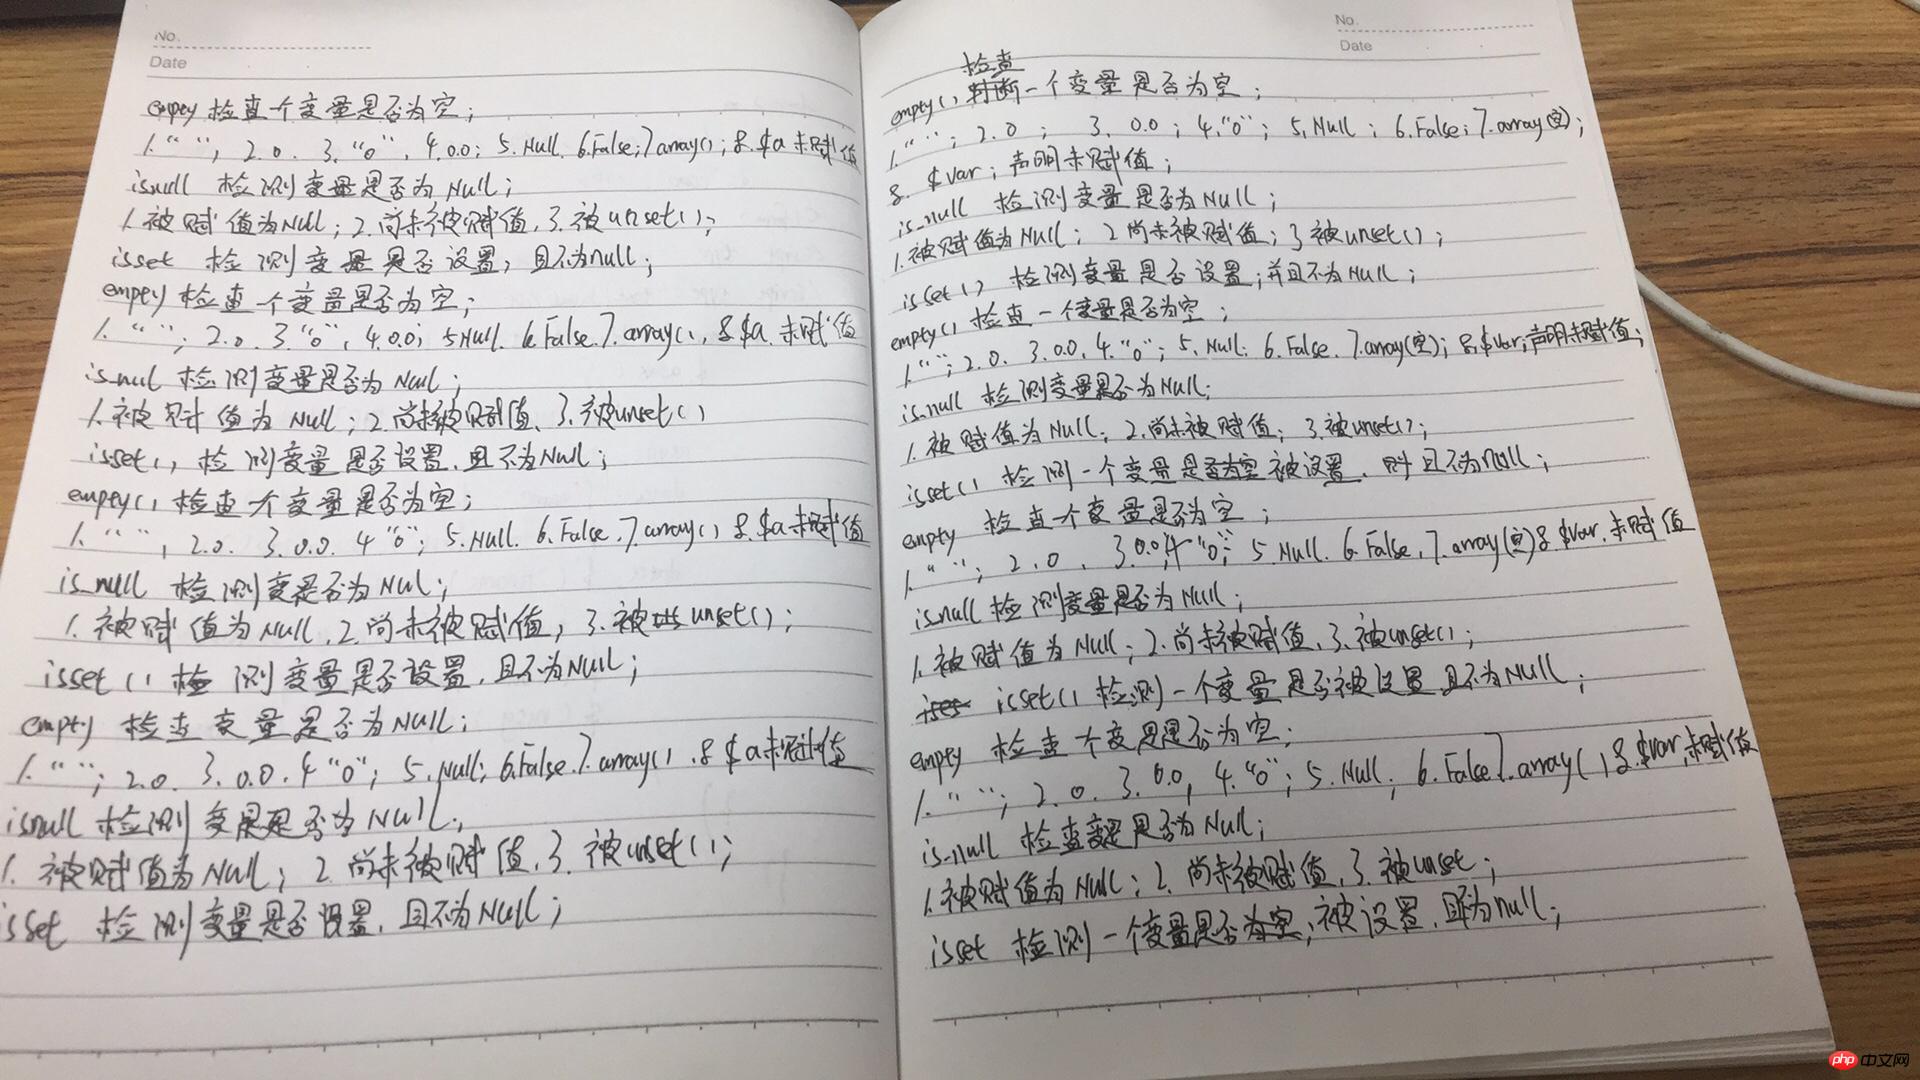 No.
Date
empty 检查一个变量是否为空;
1." "; 2.0. 3."0". 4.0.0; 5.Null. 6.False;7.array(); 8.$a 未赋值
isnull 检测变量是否为Null;
1.被赋值为Null; 2.尚未被赋值, 3.被unset();
isset 检测变量是否设置, 且不为null;
empty 检查一个变量是否为空;
1." "; 2.0. 3."0", 4.0.0; 5Null. 6.False.7.array(), 8.$a.未赋值
is_nul 检测变量是否为Null;
1.被赋值为Null; 2.尚未被赋值、3.被unset()
isset(), 检测变量是否设置.且不为Null;
empty() 检查一个变量是否为空;
1." ", 2.0. 3.0.0. 4 "0"; 5.Null. 6.False.7.array() 8.$a未赋值
is_null 检测变是否为NUl;
1.被赋值为Null.2.尚未被赋值, 3.被unset();
isset() 检测变量是否设置.且不为Null;
empty 检查变量是否为Null;
1." "; 2.0. 3.0.0.4 "0"; 5.Null; 6.False.7.array().8 $a未赋值
isnull 检测变是否为Null;
1.被赋值为Null; 2.尚未被赋值.3.被unset();
isset 检测变量是否设置.且不为Null;
No.
Date
检查
empty() 判断一个变量是否为空;
1." "; 2.0; 3. 0.0; 4."0"; 5.Null; 6.False; 7.array(空);
8. $var; 声明未赋值;
is_null 检测变量是否为Null;
1.被赋值为Null; 2尚未被赋值; 3被unset();
isset() 检测变量是否设置;并且不为Null;
empty() 检查一个变量是否为空;
1." "; 2.0. 3.0.0. 4."0"; 5.Null. 6.False. 7.array(空); 8.$var;声明未赋值;
is_null 检测变量是否为Null;
1.被赋值为Null; 2.尚未被赋值; 3.被unset();
isset() 检测一个变量是否为空被设置. 且不为null;
empty 检查一个变量是否为空;
1." "; 2.0. 3.0.0;4 "0"; 5.Null. 6.False.7.array(空)8.$var.未赋值
isnull检测变量是否为Null;
1.被赋值为Null; 2.尚未被赋值.3.被unset();
iset isset() 检测一个变量是否被设置且不为Null;
empty 检查一个变是是否为空;
1." "; 2.0. 3.0.0, 4."0"; 5.Null; 6.False7.array( ) 8.$var,未赋值
is_null 检查变是否为Null;
1.被赋值为Null; 2.尚未被赋值.3.被unset;
isset 检测一个变量是否为空,被设置.且不为null;
php 中文网